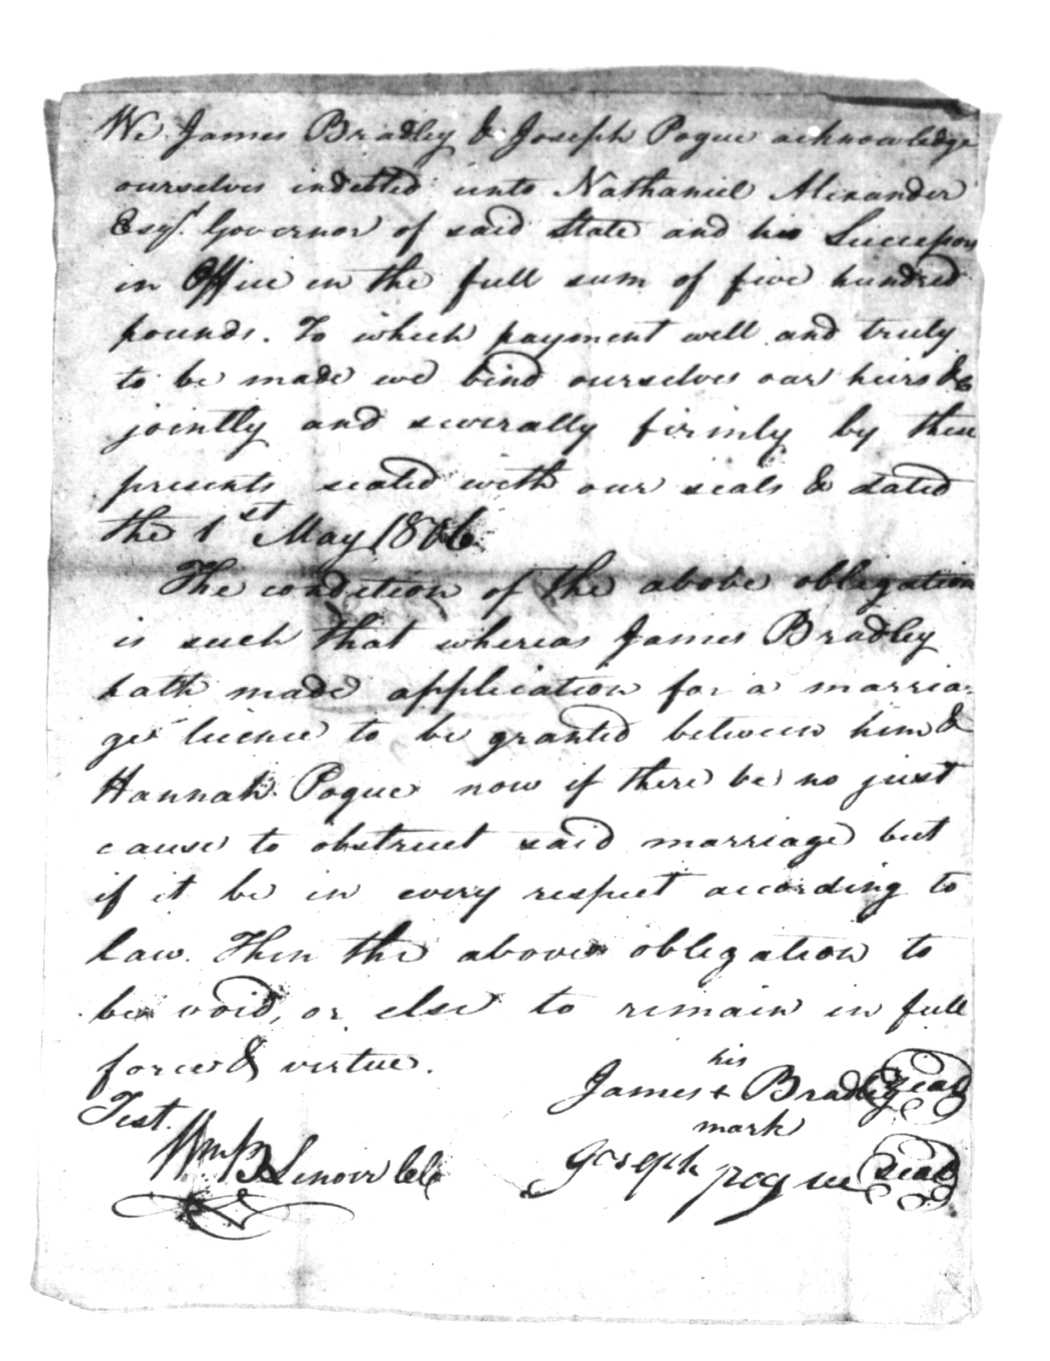 We James Bradley & Joseph Pogue acknowledge
ourselves indebted unto Nathaniel Alexander
Esqr. Governor of said State and his Successors
in Office in the full sum of five hundred
pounds. To which payment well and truly
to be made we bind ourselves our heirs &c
jointly and severally firmly by these
presents sealed with our seals & dated
the 1st May 1806
The condition of the above obligation
is such that whereas James Bradley
hath made application for a marria-
ge licence to be granted between him &
Hannah Pogue now if there be no just
cause to obstruct said marriage but
if it be in every respect according to
law. Then the above obligation to
be void, or else to remain in full
force & virtue.
his
James + Bradley seal
mark
Test.
Wm B Lenoir
Joseph pogue seal